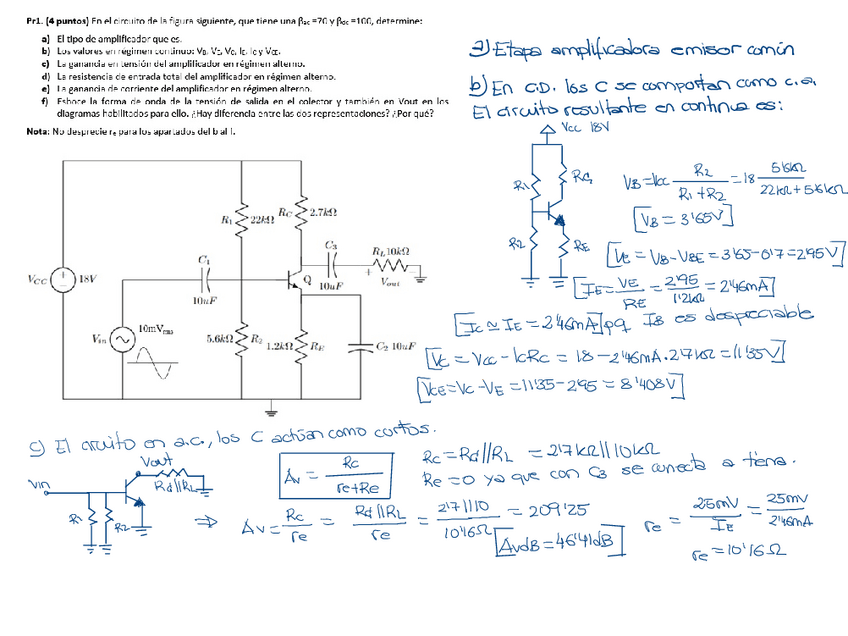 Pr1. (4 puntos) En el circuito de la figura siguiente, que tiene una βac =70 y βDC =100, determine:
a) El tipo de amplificador que es.
b) Los valores en régimen continuo: VB, VE, VC, IE, IC y VCE.
c) La ganancia en tensión del amplificador en régimen alterno.
d) La resistencia de entrada total del amplificador en régimen alterno.
e) La ganancia de corriente del amplificador en régimen alterno.
f) Esboce la forma de onda de la tensión de salida en el colector y también en Vout en los
diagramas habilitados para ello. ¿Hay diferencia entre las dos representaciones? ¿Por qué?
Nota: No desprecie re para los apartados del b al f.
VCC 18V
Vin 10mVrms
C1
10uF
R1 22kΩ
RC 2.7kΩ
C3
10uF
RL 10kΩ
+ Vout -
Q
5.6kΩ R2
1.2kΩ RE
C2 10uF
a) Etapa amplificadora emisor común
b) En C.D. los C se comportan como c.a.
El circuito resultante en continua es:
Vcc 18V
R1
RC
R2
RE
VB = Vcc R2 / (R1 + R2) = 18 5'6kΩ / (22kΩ + 5'6kΩ)
[VB = 3'65V]
[VE = VB - VBE = 3'65 - 0'7 = 2'95V]
[IE = VE / RE = 2'95 / 1'2kΩ = 2'46mA]
[IC ≃ IE = 2'46mA] pq IB es despreciable
[VC = Vcc - ICRC = 18 - 2'46mA · 2'7kΩ = 11'35V]
[VCE = VC - VE = 11'35 - 2'95 = 8'408V]
c) El circuito en a.c., los C actúan como cortos.
Vin
Vout
Rd//RL
R1
R2
Av = Rc / (re + Re)
Rc = Rd//RL = 2'7kΩ//10kΩ
Re = 0 ya que con C3 se conecta a tierra.
⇒ Av = Rc / re = Rd//RL / re = 2'7//10 / 10'16Ω = 209'25
[AvdB = 46'41dB]
re = 25mV / IE = 25mV / 2'46mA
re = 10'16Ω